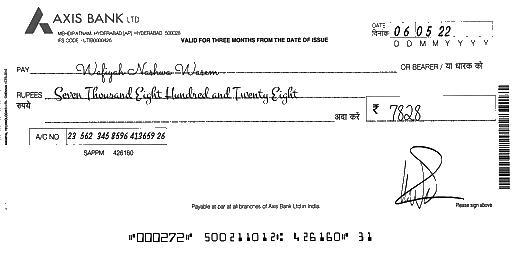 AXIS BANK LTD
MEHDIPATNAM, HYDERABAD [AP] HYDERABAD 500028
IFS CODE - UTIB0000426
VALID FOR THREE MONTHS FROM THE DATE OF ISSUE
DATE
दिनांक
06 05 22
D D M M Y Y Y Y
PAY Wafiyah Nashwa Wasem OR BEARER / या धारक को
RUPEES Seven Thousand Eight Hundred and Twenty Eight
रुपये
अदा करें ₹ 7828
A/C NO 23 562 345 8596 413659 26
SAPPM 426160
Please sign above
Payable at par at all branches of Axis Bank Ltd in India.
⑈000272⑈ 500211012⑆ 426160⑈ 31